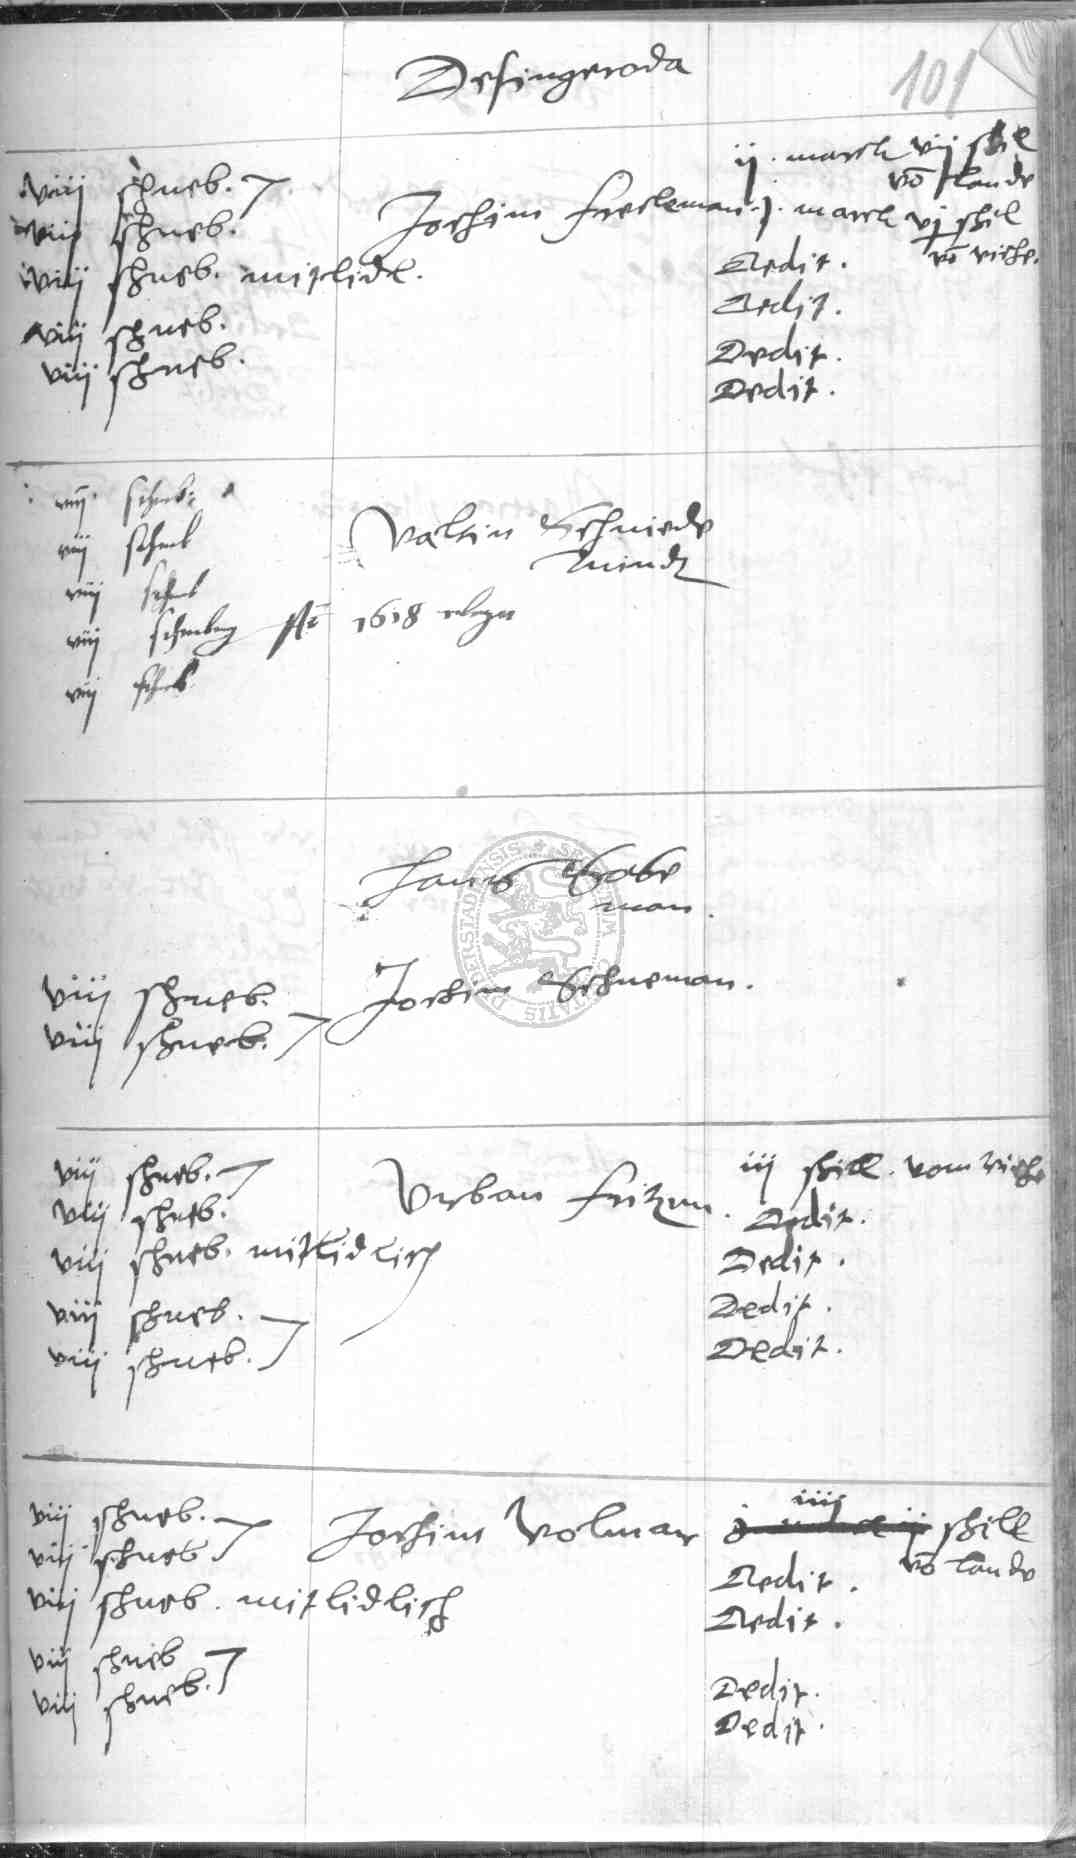 Desingeroda
101
viij schneb.
viij schneb.
viij schneb. mitlidl.
viij schneb.
viij schneb.
Jochim freckeman
ij. marck vij schil
vō lande
j. marck vj schil
vō viche.
Dedit.
Dedit.
Dedit.
Dedit.
viij schneb.
viij schneb
viij schneb
viij schneb 1618
viij schneb
Valtin Schmiede
Hans Gobe
man.
viij schneb.
viij schneb.
Jochim Schueman.
viij schneb.
viij schneb.
viij schneb. mitlidlich
viij schneb.
viij schneb.
Urban fritzen.
iij schill. vom viche
Dedit.
Dedit.
Dedit.
Dedit.
viij schneb.
viij schneb
viij schneb. mitlidlich
viij schneb
viij schneb.
Jochim Volmar
iiij schill
vō lande
Dedit.
Dedit.
Dedit.
Dedit.